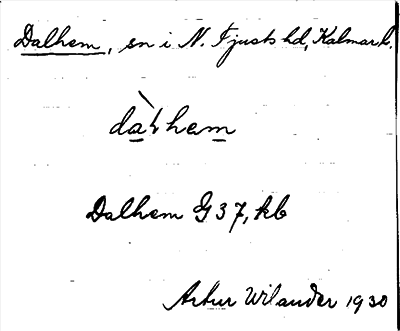 Dalhem, sn i N. Tjusts hd, Kalmar l.
dàlhem
Dalhem G 37, kb
Artur Wilander 1930